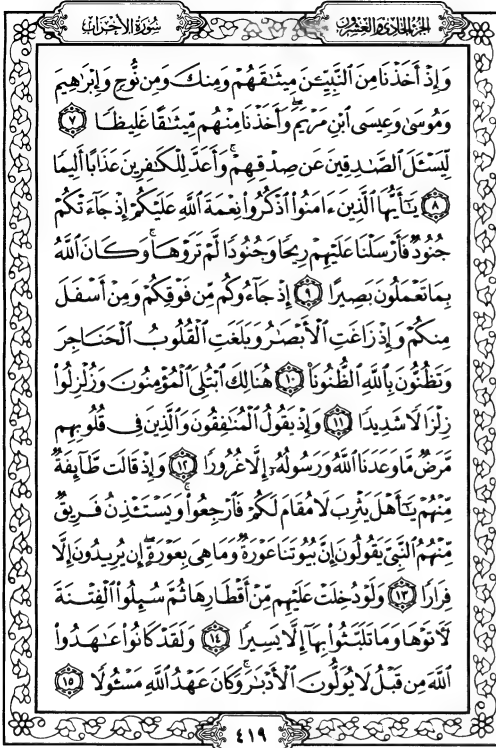 الجزء الحادي والعشرون
سورة الأحزاب
وَإِذْ أَخَذْنَا مِنَ ٱلنَّبِيِّـۧنَ مِيثَٰقَهُمْ وَمِنكَ وَمِن نُّوحٍ وَإِبْرَٰهِيمَ
وَمُوسَىٰ وَعِيسَى ٱبْنِ مَرْيَمَ ۖ وَأَخَذْنَا مِنْهُم مِّيثَٰقًا غَلِيظًا ٧
لِّيَسْـَٔلَ ٱلصَّٰدِقِينَ عَن صِدْقِهِمْ ۚ وَأَعَدَّ لِلْكَٰفِرِينَ عَذَابًا أَلِيمًا
٨ يَٰٓأَيُّهَا ٱلَّذِينَ ءَامَنُوا۟ ٱذْكُرُوا۟ نِعْمَةَ ٱللَّهِ عَلَيْكُمْ إِذْ جَآءَتْكُمْ
جُنُودٌ فَأَرْسَلْنَا عَلَيْهِمْ رِيحًا وَجُنُودًا لَّمْ تَرَوْهَا ۚ وَكَانَ ٱللَّهُ
بِمَا تَعْمَلُونَ بَصِيرًا ٩ إِذْ جَآءُوكُم مِّن فَوْقِكُمْ وَمِنْ أَسْفَلَ
مِنكُمْ وَإِذْ زَاغَتِ ٱلْأَبْصَٰرُ وَبَلَغَتِ ٱلْقُلُوبُ ٱلْحَنَاجِرَ
وَتَظُنُّونَ بِٱللَّهِ ٱلظُّنُونَا۠ ١٠ هُنَالِكَ ٱبْتُلِىَ ٱلْمُؤْمِنُونَ وَزُلْزِلُوا۟
زِلْزَالًا شَدِيدًا ١١ وَإِذْ يَقُولُ ٱلْمُنَٰفِقُونَ وَٱلَّذِينَ فِى قُلُوبِهِم
مَّرَضٌ مَّا وَعَدَنَا ٱللَّهُ وَرَسُولُهُۥٓ إِلَّا غُرُورًا ١٢ وَإِذْ قَالَت طَّآئِفَةٌ
مِّنْهُمْ يَٰٓأَهْلَ يَثْرِبَ لَا مُقَامَ لَكُمْ فَٱرْجِعُوا۟ ۚ وَيَسْتَـْٔذِنُ فَرِيقٌ
مِّنْهُمُ ٱلنَّبِىَّ يَقُولُونَ إِنَّ بُيُوتَنَا عَوْرَةٌ وَمَا هِىَ بِعَوْرَةٍ ۖ إِن يُرِيدُونَ إِلَّا
فِرَارًا ١٣ وَلَوْ دُخِلَتْ عَلَيْهِم مِّنْ أَقْطَارِهَا ثُمَّ سُئِلُوا۟ ٱلْفِتْنَةَ
لَـَٔاتَوْهَا وَمَا تَلَبَّثُوا۟ بِهَآ إِلَّا يَسِيرًا ١٤ وَلَقَدْ كَانُوا۟ عَٰهَدُوا۟
ٱللَّهَ مِن قَبْلُ لَا يُوَلُّونَ ٱلْأَدْبَٰرَ ۚ وَكَانَ عَهْدُ ٱللَّهِ مَسْـُٔولًا ١٥
٤١٩